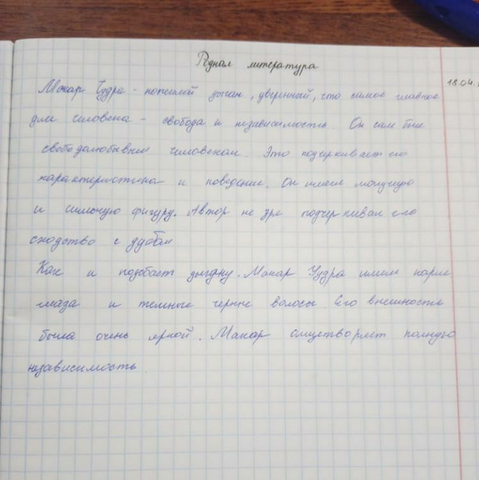 Родная литература
18.04.
Макар Чудра - пожилой цыган, уверенный, что самое главное
для человека - свобода и независимость Он сам был
свободолюбивым человеком. Это подчеркивает его
характеристика и поведение. Он имел могучую
и сильную фигуру. Автор не зря подчеркивал его
сходство с дубом
Как и подобает цыгану. Макар Чудра имел карие
глаза и темные черные волосы Его внешность
была очень яркой. Макар олицетворяет полную
независимость.